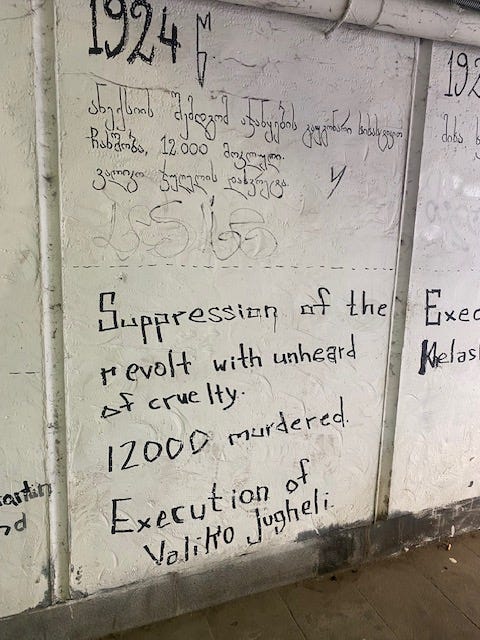 1924 წ
ანექსიის შემდგომ აჯანყების გაუგონარი სისასტიკით
ჩახშობა, 12000 მოკლული.
ვალიკო ჯუღელის დახვრეტა.
Suppression of the
revolt with unheard
of cruelty.
12000 murdered.
Execution of
Valiko Jugheli.
192
Exec
Kelas